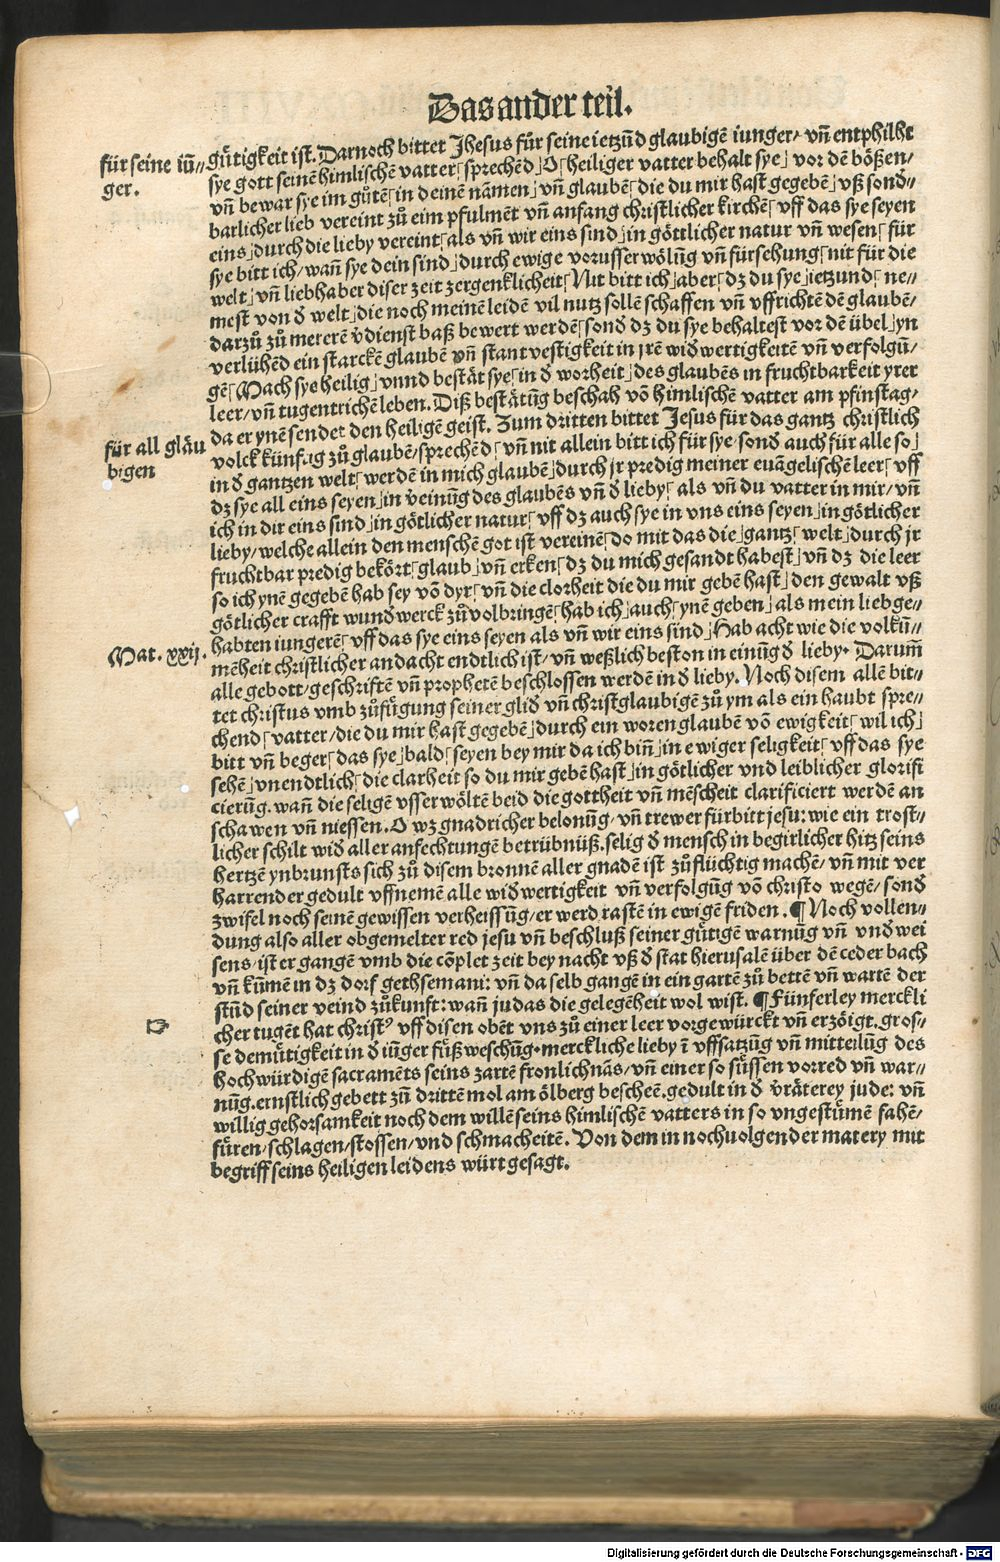 Das ander teil.
für seine iū⸗
ger.
gu̇tigkeit ist. Darnoch bittet Jhesus für seine ietzūd glaubigē iunger/ vn̄ entphilht
sye gott seinē himlischē vatter⸢ sprechēd⸥ O⸢ heiliger vatter behalt sye⸥ vor dē bößen/
vn̄ bewar sye im gu̇tē⸢ in deinē nāmen⸥ vn̄ glaubē⸢ die du mir hast gegebē⸥ vß sond⸗
barlicher lieb vereint zů eim pfulmēt vn̄ anfang christlicher kirchē⸢ vff das sye seyen
eins⸥ durch die lieby vereint⸢ als vn̄ wir eins sind⸥ in göttlicher natur vn̄ wesen⸢ für
sye bitt ich/ wan̄ sye dein sind⸥ durch ewige vorusserwölūg vn̄ fürsehung⸢ nit für die
welt⸥ vn̄ liebhaber diser zeit zergenklicheit⸢ Nit bitt ich⸥ aber⸢ dz du sye⸥ ietzund⸢ ne⸗
mest von d̄ welt⸥ die noch meinē leidē vil nutz sollē schaffen vn̄ vffrichtē dē glaubē/
darzů zů mererē v̄dienst baß bewert werdē⸢ sond̄ dz du sye behaltest vor dē übel⸥ yn
verlühēd ein starckē glaubē vn̄ stantvestigkeit in jrē wid̄wertigkeitē vn̄ verfolgū/
gē⸢ Mach sye heilig⸥ vnnd bestät sye⸢ in d̄ worheit⸥ des glaubēs in fruchtbarkeit yrer
leer/ vn̄ tugentrichē leben. Diß bestätūg beschah vō himlischē vatter am pfinstag/
da er ynē sendet den heiligē geist. Zum dritten bittet Jesus für das gantz christlich
für all gläu
bigen
volck künftig zů glaubē/ sprechēd⸢ vn̄ nit allein bitt ich für sye⸢ sond̄ auch für alle so⸥
in d̄ gantzen welt⸢ werdē in mich glaubē⸥ durch jr predig meiner euāgelischē leer⸢ vff
dz sye all eins seyen⸥ in v̄einūg des glaubēs vn̄ d̄ lieby⸢ als vn̄ du vatter in mir/ vn̄
ich in dir eins sind⸥ in götlicher natur⸢ vff dz auch sye in vns eins seyen⸥ in götlicher
lieby/ welche allein den menschē got ist vereinē⸢ do mit das die⸥ gantz⸢ welt⸥ durch jr
fruchtbar predig bekört⸢ glaub⸥ vn̄ erken⸢ dz du mich gesandt habest⸥ vn̄ dz die leer
so ich ynē gegebē hab sey vō dyr⸢ vn̄ die clorheit die du mir gebē hast⸥ den gewalt vß
götlicher crafft wund̄werck zů volbringē⸢ hab ich⸥ auch⸢ ynē geben⸥ als mein liebge⸗
habten iungerē⸢ vff das sye eins seyen als vn̄ wir eins sind⸥ Hab acht wie die volkū⸗
Mat. xxij.
mēheit christlicher andacht endtlich ist/ vn̄ weßlich beston in einūg d̄ lieby. Darum̄
alle gebott/ geschriftē vn̄ prophetē beschlossen werdē in d̄ lieby. Noch disem allē bit⸗
tet christus vmb zůfügung seiner glid̄ vn̄ christglaubigē zů ym als ein haubt spre⸗
chend⸢ vatter/ die du mir hast gegebē⸥ durch ein woren glaubē vō ewigkeit⸢ wil ich⸥
bitt vn̄ beger⸢ das sye⸥ bald⸢ seyen bey mir da ich bin̄⸥ in ewiger seligkeit⸢ vff das sye
sehē⸥ vnendtlich⸢ die clarheit so du mir gebē hast⸥ in götlicher vnd leiblicher glorifi
cierūg. wan̄ die seligē vsserwöltē beid die gottheit vn̄ mēscheit clarificiert werdē an
schawen vn̄ niessen. O wz gnadricher belonūg/ vn̄ trewer fürbitt jesu: wie ein trost⸗
licher schilt wid̄ aller anfechtungē betrübnüß. selig d̄ mensch in begirlicher hitz seins
hertzē ynbrunsts sich zů disem bronnē aller gnadē ist zůflüchtig machē/ vn̄ mit ver
harrender gedult vffnemē alle wid̄wertigkeit vn̄ verfolgūg vō christo wegē/ sond̄
zwifel noch seinē gewissen verheissūg/ er werd rastē in ewigē friden. ¶ Noch vollen⸗
dung also aller obgemelter red jesu vn̄ beschluß seiner gu̇tigē warnūg vn̄ vnd̄wei
sens/ ist er gangē vmb die cōplet zeit bey nacht vß d̄ stat hierusalē über dē ceder bach
vn̄ kūmē in dz dorf gethsemani: vn̄ da selb gangē in ein gartē zů bettē vn̄ wartē der
stūd seiner veind zůkunft: wan̄ judas die gelegēheit wol wist. ¶ Fünferley merckli
☞
cher tugēt hat christꝰ vff disen obēt vns zů einer leer vorgewürckt vn̄ erzöigt. gros⸗
se demu̇tigkeit in d̄ iūger fu̇ßweschūg. merckliche lieby ī vffsatzūg vn̄ mitteilūg des
hochwürdigē sacramēts seins zartē fronlichnās/ vn̄ einer so su̇ssen vorred vn̄ war⸗
nūg. ernstlich gebett zū drittē mol am ölberg bescheē. gedult in d̄ v̄räterey jude: vn̄
willig gehorsamkeit noch dem willē seins himlischē vatters in so vngestu̇mē fahē/
fu̇ren/ schlagen/ stossen/ vnd schmacheitē. Von dem in nochuolgender matery mit
begriff seins heiligen leidens würt gesagt.
Digitalisierung gefördert durch die Deutsche Forschungsgemeinschaft - DFG